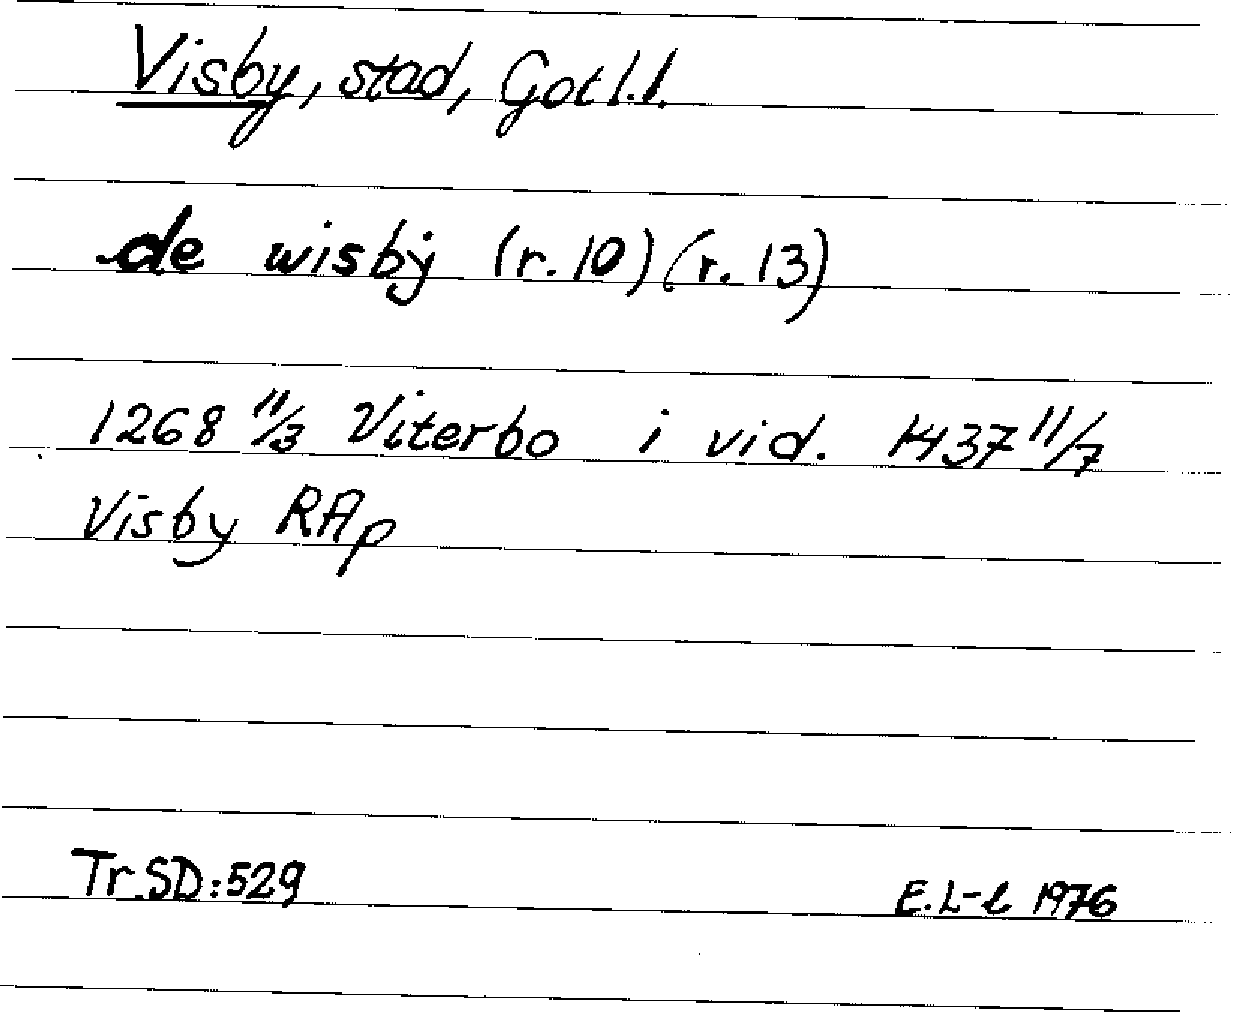 Visby, stad, Gotl.l.
de wisbẏ (r. 10) (r. 13)
1268 11/3 Viterbo i vid. 1437 11/7
Visby RAp
Tr.SD:529
E.L-l 1976